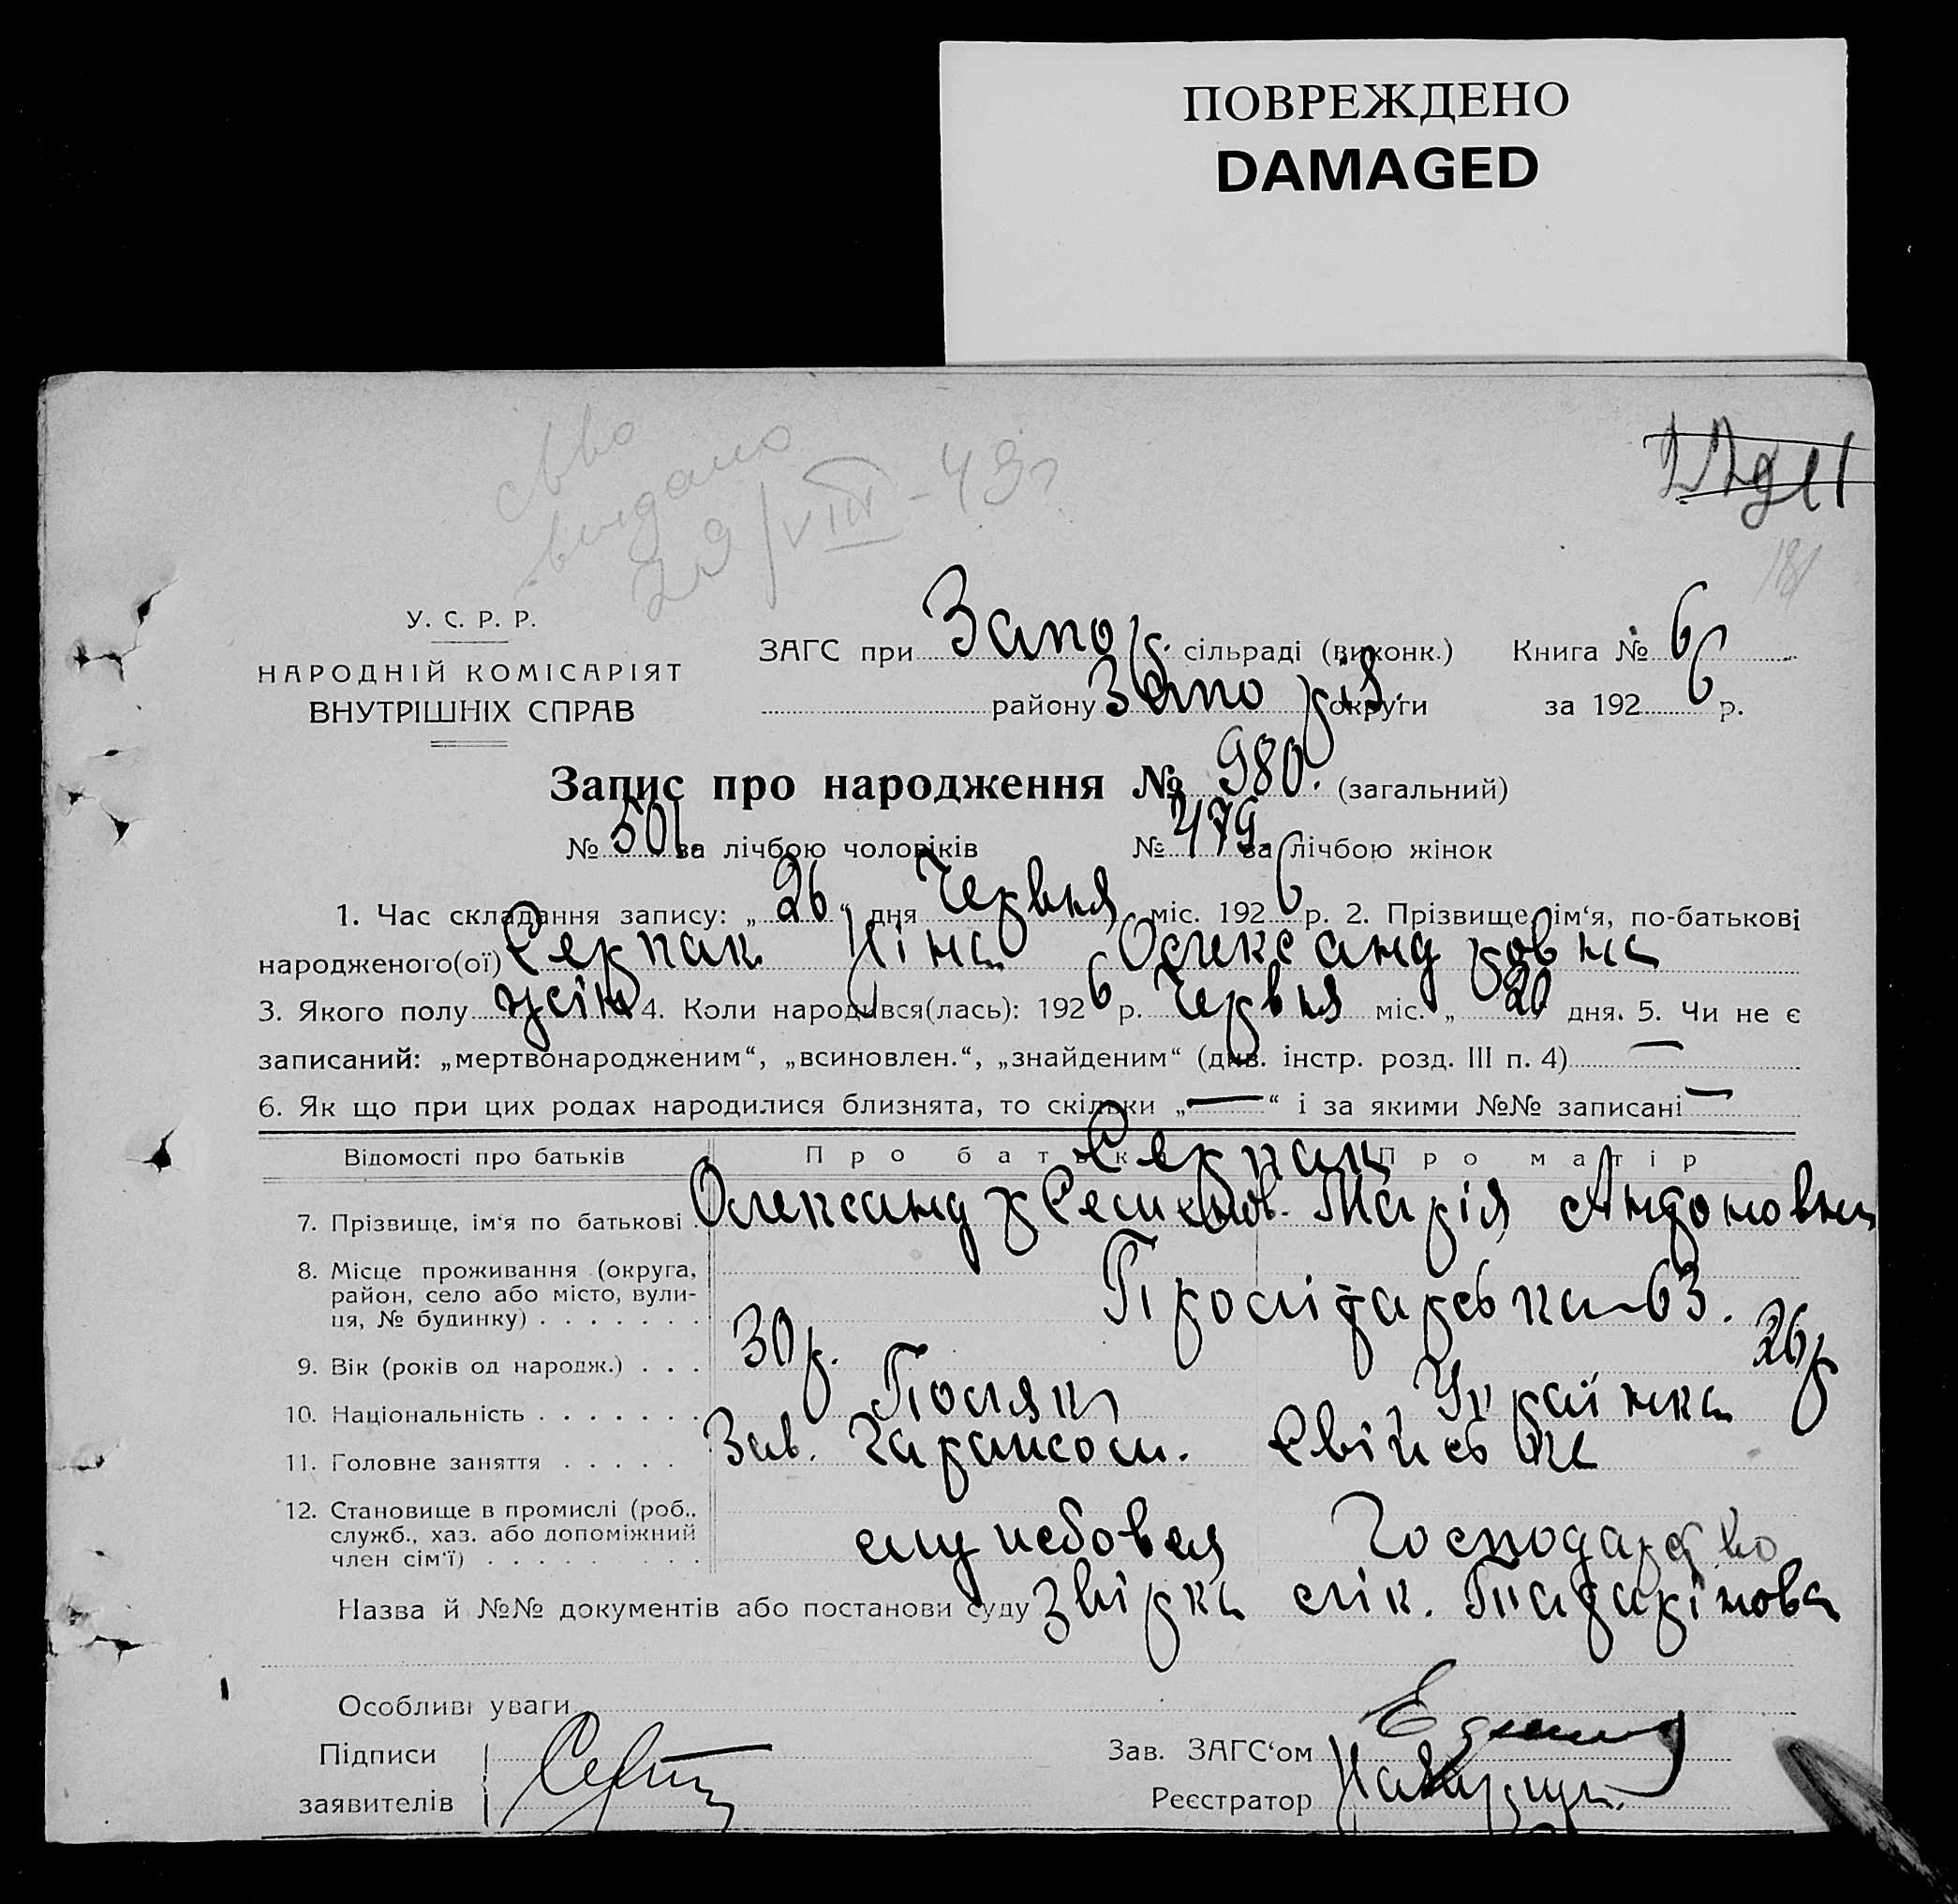 ПОВРЕЖДЕНО
DAMAGED
видано
29/VIII-49г
181
У. С. Р. Р.
НАРОДНІЙ КОМІСАРІЯТ
ВНУТРІШНІХ СПРАВ
ЗАГС при Запо сільраді (виконк.) Книга № 6
району Запоріз. округи за 1926 р.
Запис про народження № 980. (загальний)
№ 501. за лічбою чоловіків № 479. за лічбою жінок
1. Час складання запису: „26“ дня Червня міс. 1926 р. 2. Прізвище, ім‘я, по-батькові
народженого(ої) Серпак Ніна Олександровна
3. Якого полу жін 4. Коли народився(лась): 1926 р. Червня міс. „20 дня. 5. Чи не є
записаний: „мертвонародженим“, „всиновлен.“, „знайденим“ (див. інстр. розд. III п. 4) —
6. Як що при цих родах народилися близнята, то скільки „—“ і за якими №№ записані —
Відомості про батьків Про батька Про матір
Серпак
7. Прізвище, ім‘я по батькові Олександр Марія Андоновна
8. Місце проживання (округа,
район, село або місто, вули-
ця, № будинку) . . . . . . . Пролітарська-63.
9. Вік (років од народж.) . . . 30р. 26р
10. Національність . . . . . . . Поляк Українка
11. Головне заняття . . . . . Зав. Гаражом. Свійське
12. Становище в промислі (роб.,
служб., хаз. або допоміжний
член сім‘ї) . . . . . . . . . службовец Господарство
Назва й №№ документів або постанови суду Звірка лік.
Особливі уваги
Підписи
заявителів
Зав. ЗАГС‘ом
Реєстратор